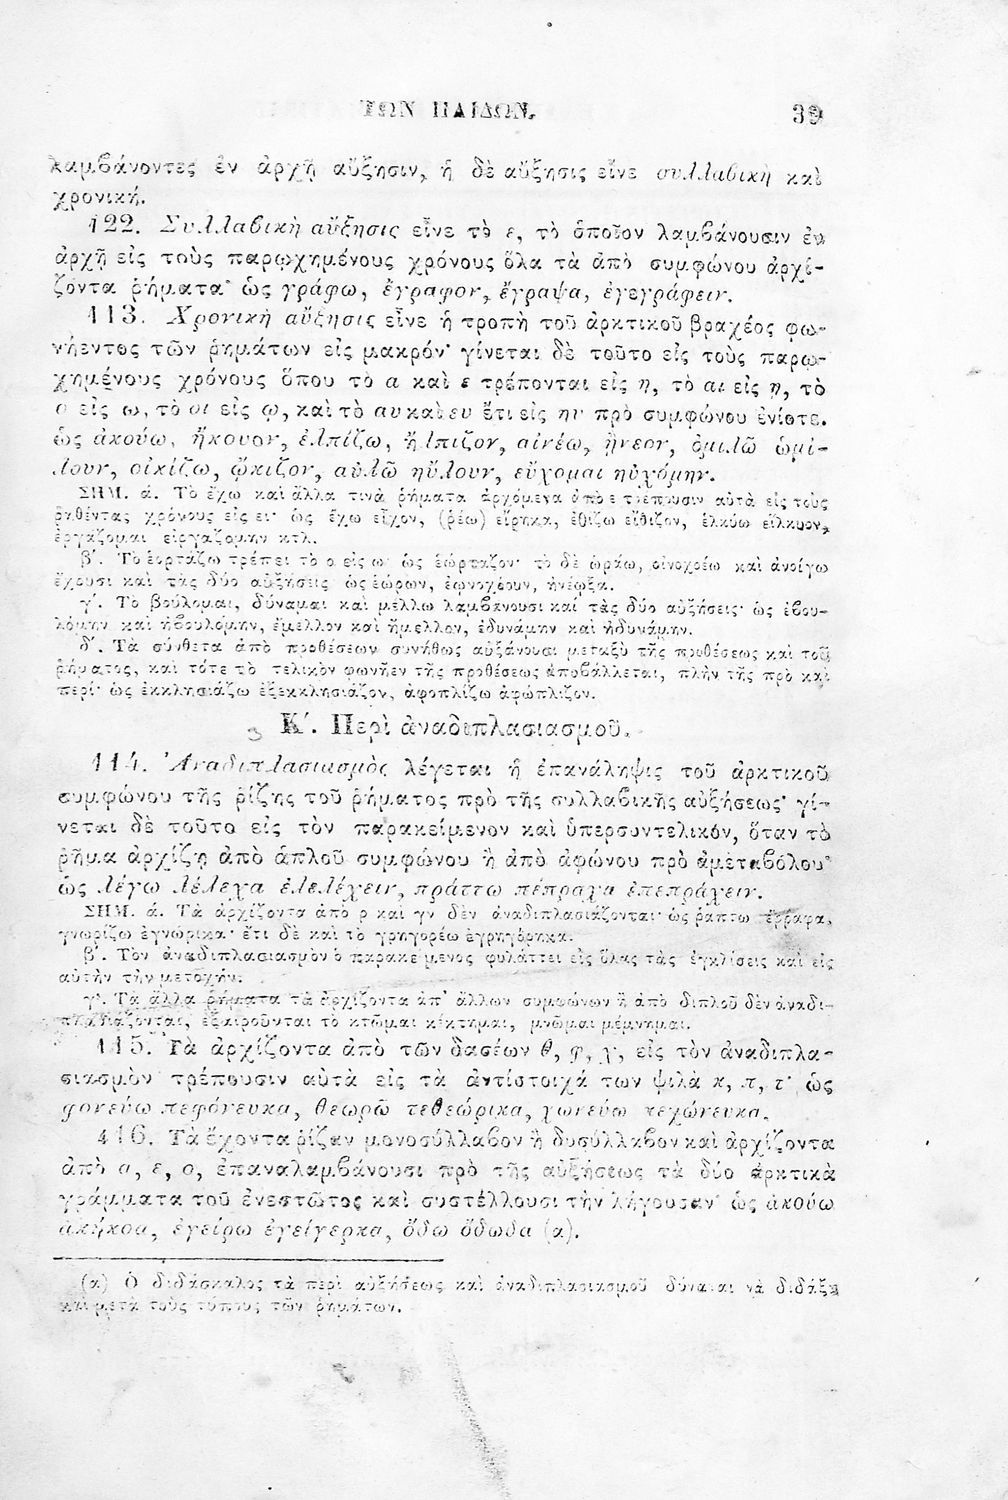 ΤΩΝ ΠΑΙΔΩΝ. 39
λαμβάνοντες ἐν ἀρχῇ αὔξησιν, ἡ δὲ αὔξησις εἶνε συλλαβικὴ καὶ
χρονική.
122. Συλλαβικὴ αὔξησις εἶνε τὸ ε, τὸ ὁποῖον λαμβάνουσιν ἐν
ἀρχῇ εἰς τοὺς παρῳχημένους χρόνους ὅλα τὰ ἀπὸ συμφώνου ἀρχί-
ζοντα ῥήματα· ὡς γράφω, ἔγραφον, ἔγραψα, ἐγεγράφειν.
113. Χρονικὴ αὔξησις εἶνε ἡ τροπὴ τοῦ ἀρκτικοῦ βραχέος φω-
νήεντος τῶν ῥημάτων εἰς μακρόν· γίνεται δὲ τοῦτο εἰς τοὺς παρῳ-
χημένους χρόνους ὅπου τὸ α καὶ ε τρέπονται εἰς η, τὸ αι εἰς ῃ, τὸ
ο εἰς ω, τὸ οι εἰς ῳ, καὶ τὸ αυ καὶ ευ ἔτι εἰς ηυ πρὸ συμφώνου ἐνίοτε.
ὡς ἀκούω, ἤκουον, ἐλπίζω, ἤλπιζον, αἰνέω, ᾔνεον, ὁμιλῶ ὡμί-
λουν, οἰκίζω, ᾤκιζον, αὐλῶ ηὔλουν, εὔχομαι ηὐχόμην.
ΣΗΜ. ά. Τὸ ἔχω καὶ ἄλλα τινὰ ῥήματα ἀρχόμενα ἀπὸ ε τρέπουσιν αὐτὰ εἰς τοὺς
ῥηθέντας χρόνους εἰς ει· ὡς ἔχω εἶχον, (ῥέω) εἴρηκα, ἐθίζω εἴθιζον, ἑλκύω εἵλκυον,
ἐργάζομαι εἰργαζόμην κτλ.
β´. Τὸ ἑορτάζω τρέπει τὸ ο εἰς ω· ὡς ἑώρταζον· τὸ δὲ ὁράω, οἰνοχοέω καὶ ἀνοίγω
ἔχουσι καὶ τὰς δύο αὐξήσεις ὡς ἑώρων, ἐῳνοχόουν, ἠνέῳξα.
γ´. Τὸ βούλομαι, δύναμαι καὶ μέλλω λαμβάνουσι καὶ τὰς δύο αὐξήσεις· ὡς ἐβου-
λόμην καὶ ἠβουλόμην, ἔμελλον καὶ ἤμελλον, ἐδυνάμην καὶ ἠδυνάμην.
δ´. Τὰ σύνθετα ἀπὸ προθέσεων συνήθως αὐξάνουσι μεταξὺ τῆς προθέσεως καὶ τοῦ
ῥήματος, καὶ τότε τὸ τελικὸν φωνῆεν τῆς προθέσεως ἀποβάλλεται, πλὴν τῆς πρὸ καὶ
περί· ὡς ἐκκλησιάζω ἐξεκκλησιάζον, ἀφοπλίζω ἀφώπλιζον.
Κ´. Περὶ ἀναδιπλασιασμοῦ.
114. Ἀναδιπλασιασμὸς λέγεται ἡ ἐπανάληψις τοῦ ἀρκτικοῦ
συμφώνου τῆς ῥίζης τοῦ ῥήματος πρὸ τῆς συλλαβικῆς αὐξήσεως· γί-
νεται δὲ τοῦτο εἰς τὸν παρακείμενον καὶ ὑπερσυντελικόν, ὅταν τὸ
ῥῆμα ἀρχίζῃ ἀπὸ ἁπλοῦ συμφώνου ἢ ἀπὸ ἀφώνου πρὸ ἀμεταβόλου·
ὡς λέγω λέλεχα ἐλελέχειν, πράττω πέπραχα ἐπεπράχειν.
ΣΗΜ. ά. Τὰ ἀρχίζοντα ἀπὸ ρ καὶ γν δὲν ἀναδιπλασιάζονται· ὡς ῥάπτω ἔρραφα,
γνωρίζω ἐγνώρικα· ἔτι δὲ καὶ τὸ γρηγορέω ἐγρηγόρηκα.
β´. Τὸν ἀναδιπλασιασμὸν ὁ παρακείμενος φυλάττει εἰς ὅλας τὰς ἐγκλίσεις καὶ εἰς
αὐτὴν τὴν μετοχήν.
γ´. Τὰ ἄλλα ῥήματα τὰ ἀρχίζοντα ἀπ' ἄλλων συμφώνων ἢ ἀπὸ διπλοῦ δὲν ἀναδι-
πλασιάζονται, ἐξαιροῦνται τὸ κτῶμαι κέκτημαι, μνῶμαι μέμνημαι.
115. Τὰ ἀρχίζοντα ἀπὸ τῶν δασέων θ, φ, χ, εἰς τὸν ἀναδιπλα-
σιασμὸν τρέπουσιν αὐτὰ εἰς τὰ ἀντίστοιχά των ψιλὰ κ, π, τ· ὡς
φονεύω πεφόνευκα, θεωρῶ τεθεώρικα, χωνεύω κεχώνευκα.
116. Τὰ ἔχοντα ῥίζαν μονοσύλλαβον ἢ δυσύλλαβον καὶ ἀρχίζοντα
ἀπὸ α, ε, ο, ἐπαναλαμβάνουσι πρὸ τῆς αὐξήσεως τὰ δύο ἀρκτικὰ
γράμματα τοῦ ἐνεστῶτος καὶ συστέλλουσι τὴν λήγουσαν· ὡς ἀκούω
ἀκήκοα, ἐγείρω ἐγείγερκα, ὄδω ὄδωδα (α).
(α) Ὁ διδάσκαλος τὰ περὶ αὐξήσεως καὶ ἀναδιπλασιασμοῦ δύναται νὰ διδάξῃ
καὶ μετὰ τοὺς τύπους τῶν ῥημάτων.